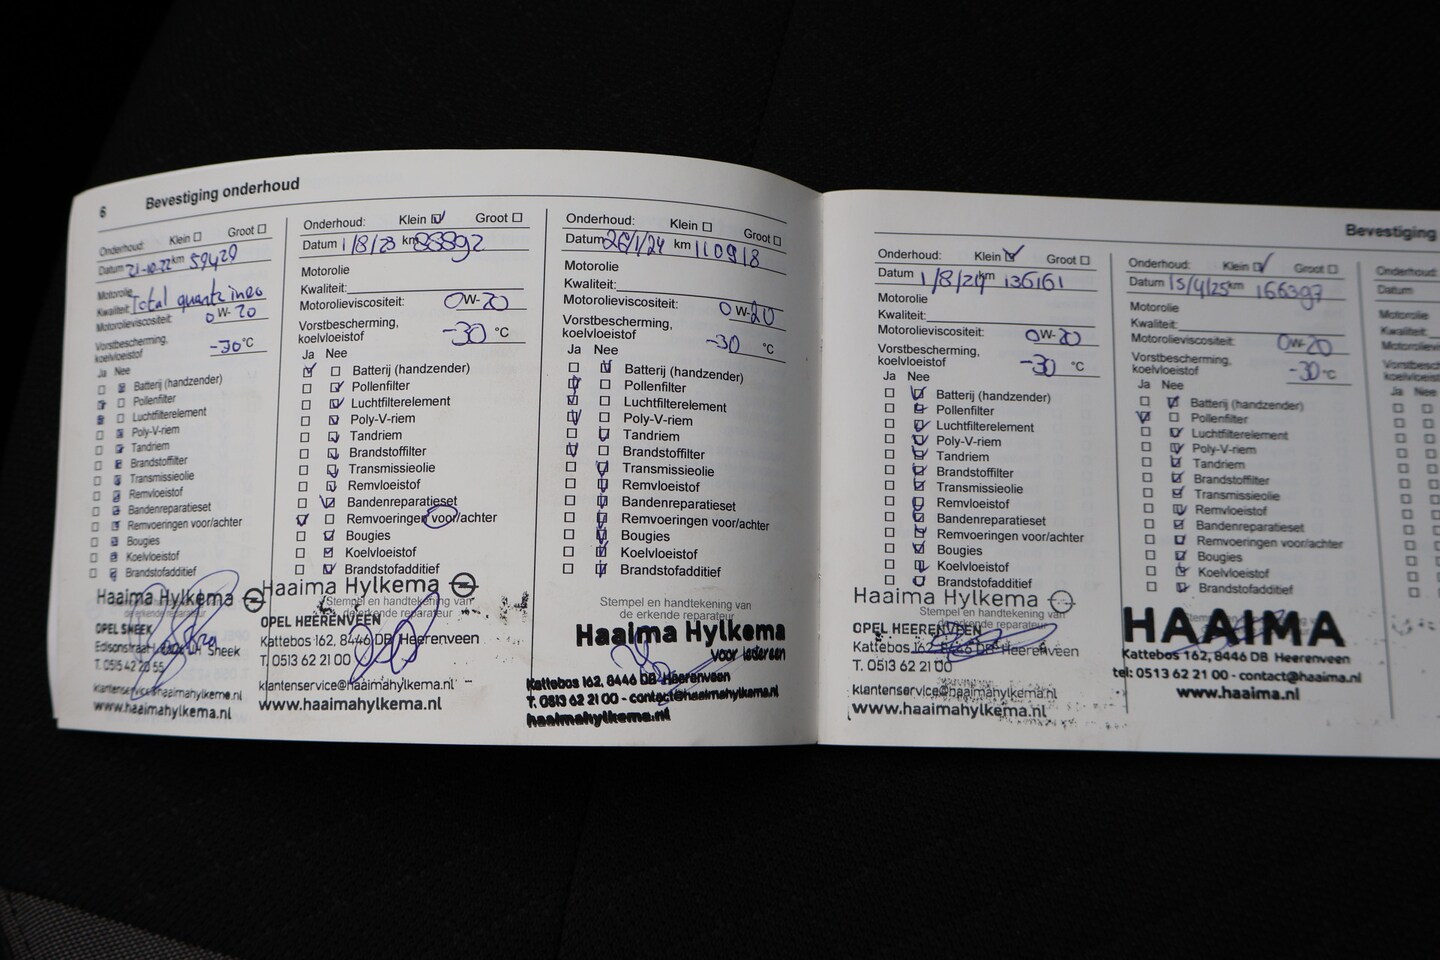 6 Bevestiging onderhoud
Onderhoud: Klein Groot
Datum 21-10-22 km 59429
Motorolie
Kwaliteit: Total quartz ineo
Motorolieviscositeit: 0W-20
Vorstbescherming,
koelvloeistof -30 °C
Ja Nee
Batterij (handzender)
Pollenfilter
Luchtfilterelement
Poly-V-riem
Tandriem
Brandstoffilter
Transmissieolie
Remvloeistof
Bandenreparatieset
Remvoeringen voor/achter
Bougies
Koelvloeistof
Brandstofadditief
Haaima Hylkema
de erkende reparateur
OPEL SNEEK
Sneek
klantenservice@haaimahylkema.nl
www.haaimahylkema.nl
Onderhoud: Klein Groot
Datum 1/8/23 km 88892
Motorolie
Kwaliteit:
Motorolieviscositeit: 0W-20
Vorstbescherming,
koelvloeistof -30 °C
Ja Nee
Batterij (handzender)
Pollenfilter
Luchtfilterelement
Poly-V-riem
Tandriem
Brandstoffilter
Transmissieolie
Remvloeistof
Bandenreparatieset
Remvoeringen voor/achter
Bougies
Koelvloeistof
Brandstofadditief
Haaima Hylkema
Stempel en handtekening van
de erkende reparateur
OPEL HEERENVEEN
Kattebos 162, 8446 DB Heerenveen
T. 0513 62 21 00
klantenservice@haaimahylkema.nl
www.haaimahylkema.nl
Onderhoud: Klein Groot
Datum 26/1/24 km 110918
Motorolie
Kwaliteit:
Motorolieviscositeit: 0W-20
Vorstbescherming,
koelvloeistof -30 °C
Ja Nee
Batterij (handzender)
Pollenfilter
Luchtfilterelement
Poly-V-riem
Tandriem
Brandstoffilter
Transmissieolie
Remvloeistof
Bandenreparatieset
Remvoeringen voor/achter
Bougies
Koelvloeistof
Brandstofadditief
Stempel en handtekening van
de erkende reparateur
Haaima Hylkema
voor iedereen
Kattebos 162, 8446 DB Heerenveen
T. 0513 62 21 00 - contact@haaimahylkema.nl
haaimahylkema.nl
Bevestiging
Onderhoud: Klein Groot
Datum 1/8/24 km 136161
Motorolie
Kwaliteit:
Motorolieviscositeit: 0W-20
Vorstbescherming,
koelvloeistof -30 °C
Ja Nee
Batterij (handzender)
Pollenfilter
Luchtfilterelement
Poly-V-riem
Tandriem
Brandstoffilter
Transmissieolie
Remvloeistof
Bandenreparatieset
Remvoeringen voor/achter
Bougies
Koelvloeistof
Brandstofadditief
Haaima Hylkema
Stempel en handtekening van
de erkende reparateur
OPEL HEERENVEEN
Kattebos 162, 8446 DB Heerenveen
T. 0513 62 21 00
klantenservice@haaimahylkema.nl
www.haaimahylkema.nl
Onderhoud: Klein Groot
Datum 15/4/25 km 166397
Motorolie
Kwaliteit:
Motorolieviscositeit: 0W-20
Vorstbescherming,
koelvloeistof -30 °C
Ja Nee
Batterij (handzender)
Pollenfilter
Luchtfilterelement
Poly-V-riem
Tandriem
Brandstoffilter
Transmissieolie
Remvloeistof
Bandenreparatieset
Remvoeringen voor/achter
Bougies
Koelvloeistof
Brandstofadditief
HAAIMA
Kattebos 162, 8446 DB Heerenveen
tel: 0513 62 21 00 - contact@haaima.nl
www.haaima.nl
Onderhoud:
Datum
Motorolie
Kwaliteit:
Ja Nee